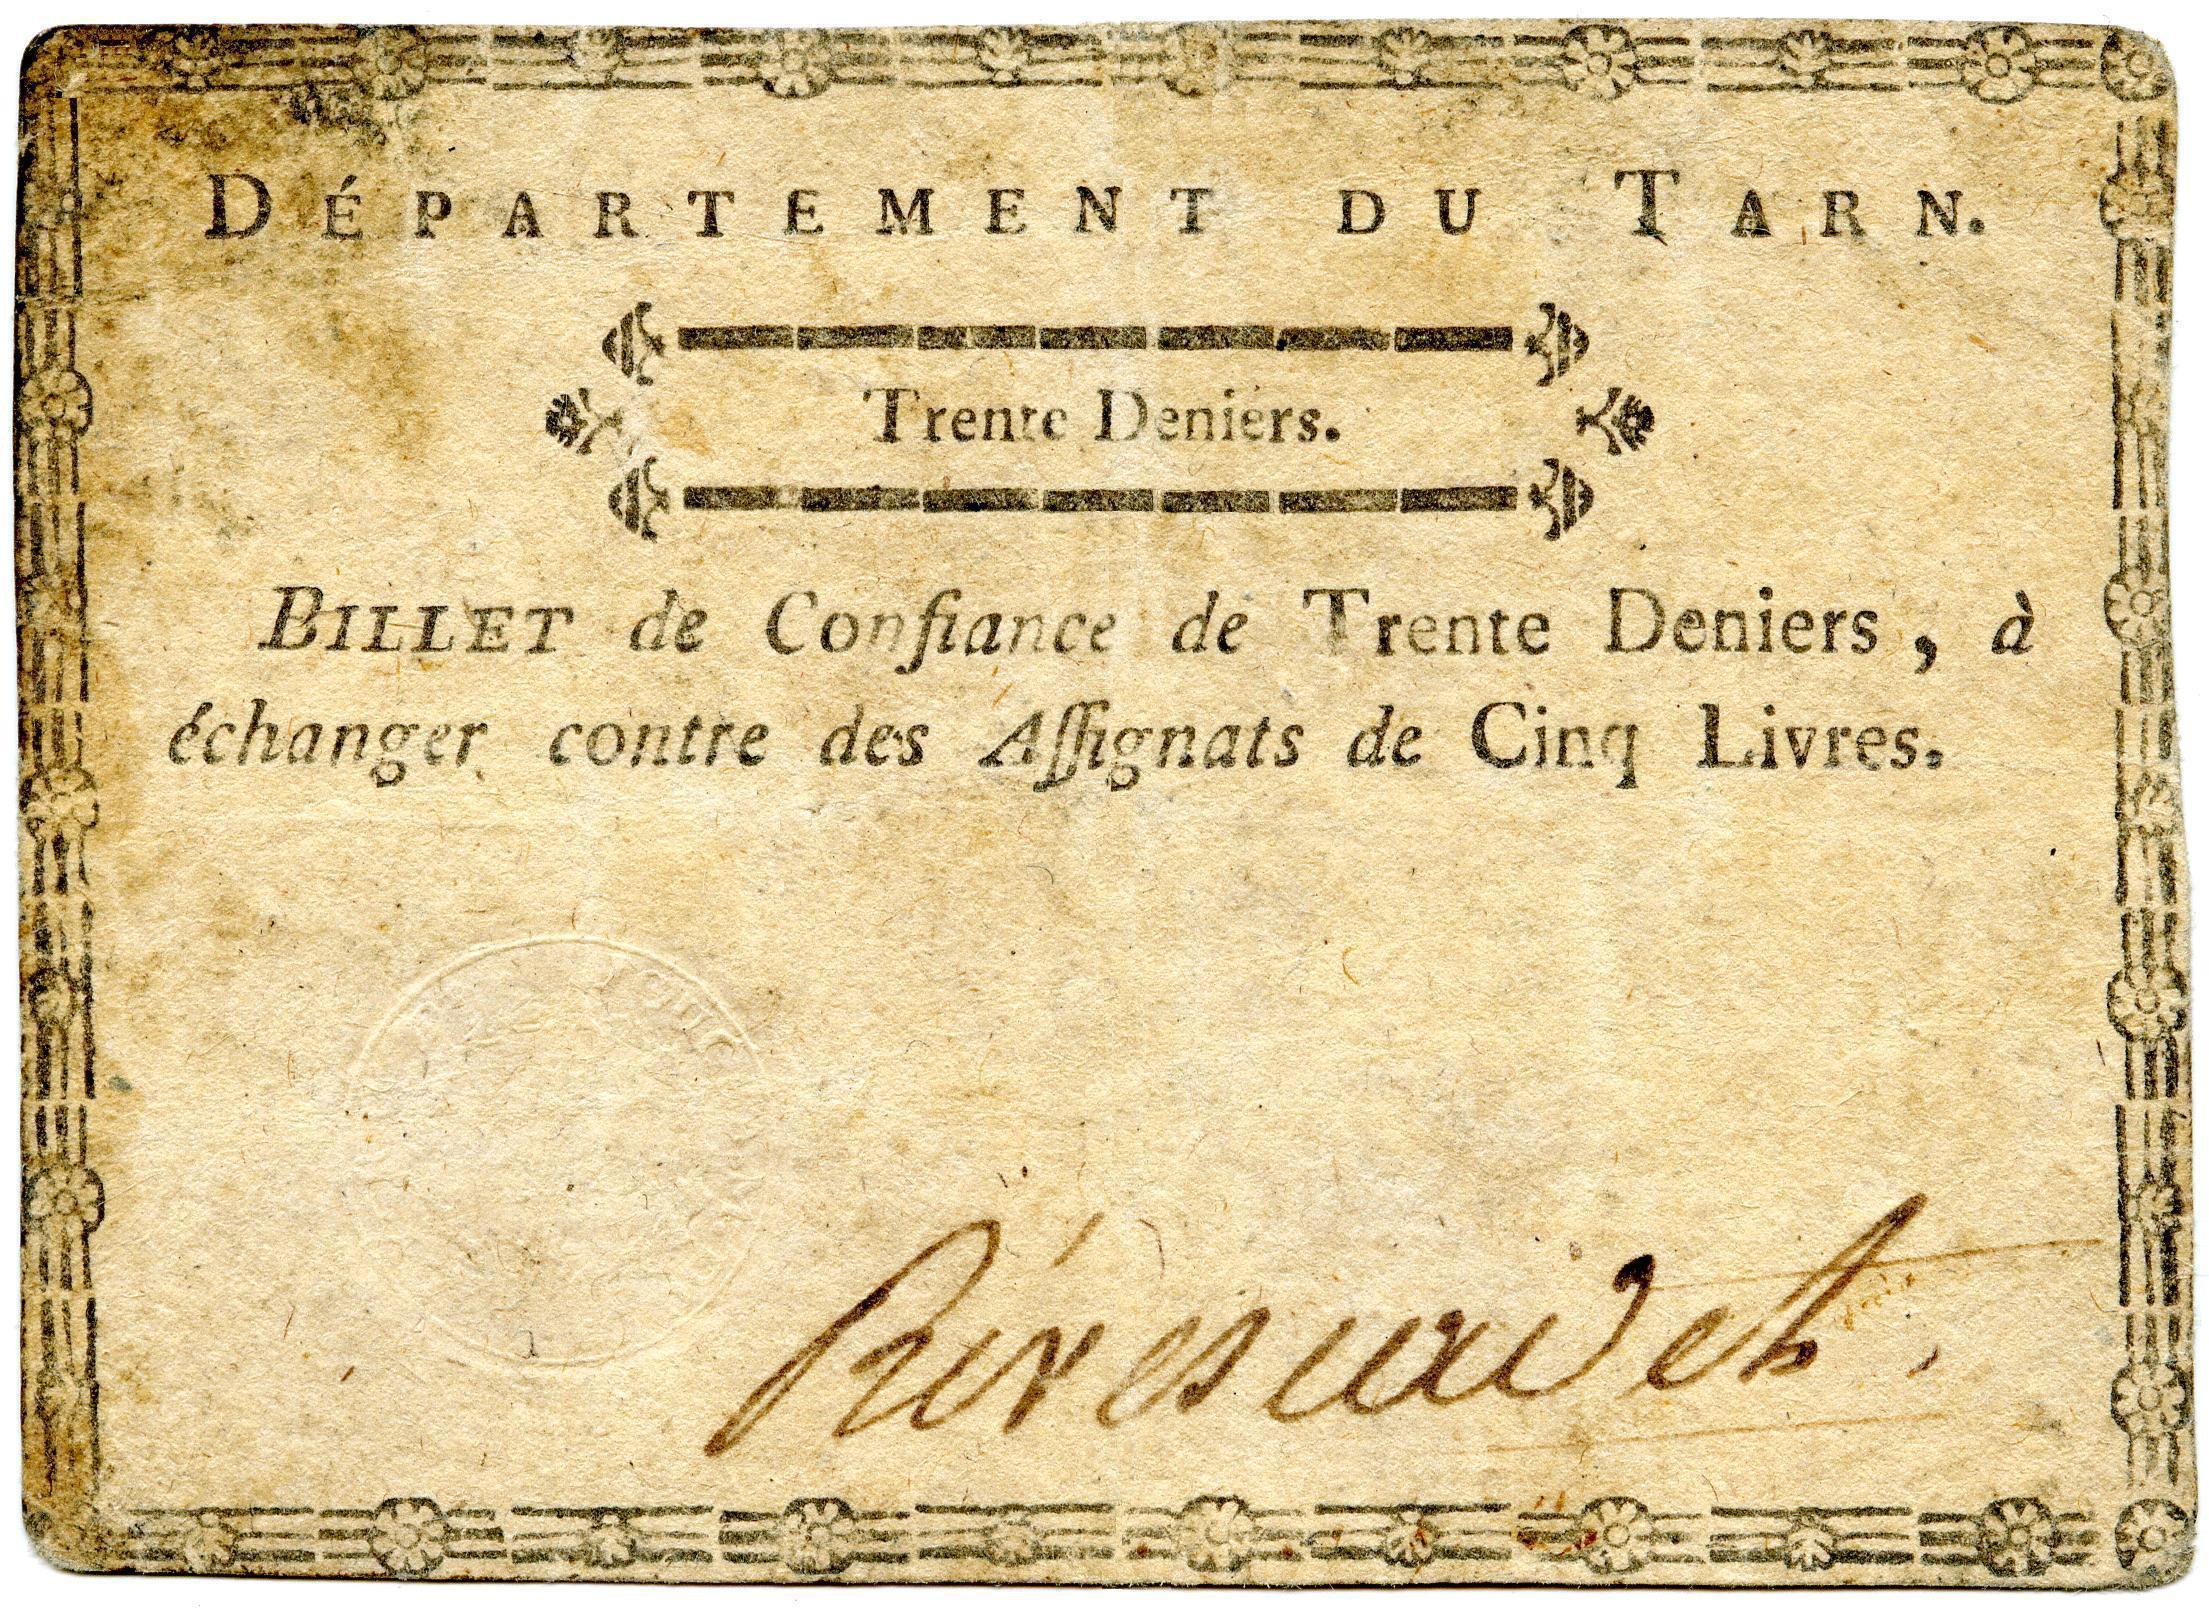 DÉPARTEMENT DU TARN.
Trente Deniers.
BILLET de Confiance de Trente Deniers, à
échanger contre des Aſſignats de Cinq Livres.